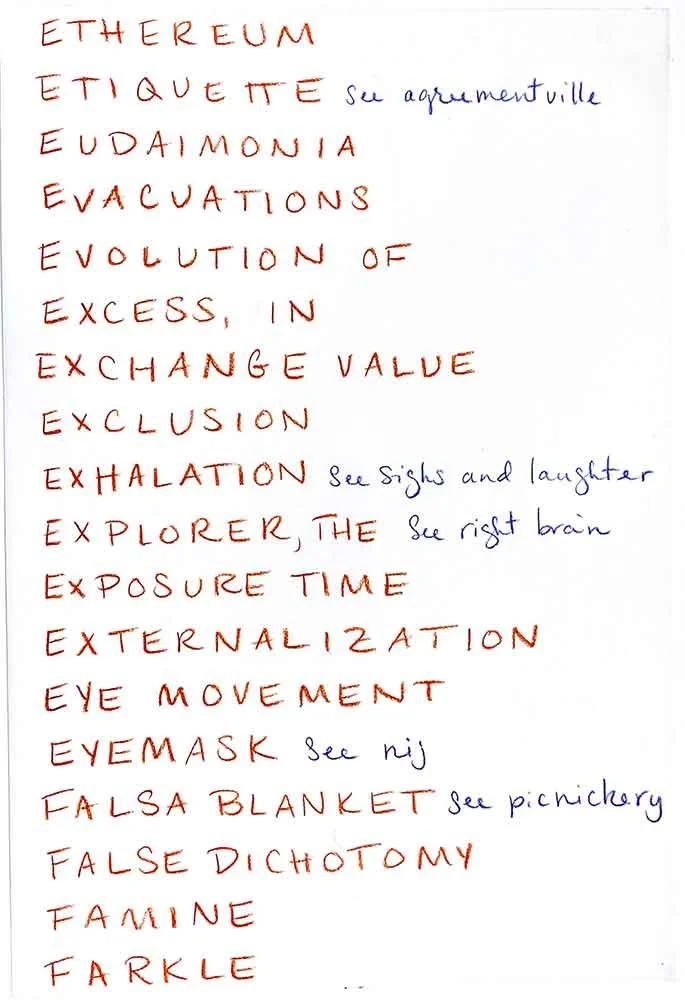 ETHEREUM
ETIQUETTE See agreementville
EUDAIMONIA
EVACUATIONS
EVOLUTION OF
EXCESS, IN
EXCHANGE VALUE
EXCLUSION
EXHALATION See Sighs and laughter
EXPLORER, THE See right brain
EXPOSURE TIME
EXTERNALIZATION
EYE MOVEMENT
EYEMASK See nij
FALSA BLANKET See picnickery
FALSE DICHOTOMY
FAMINE
FARKLE